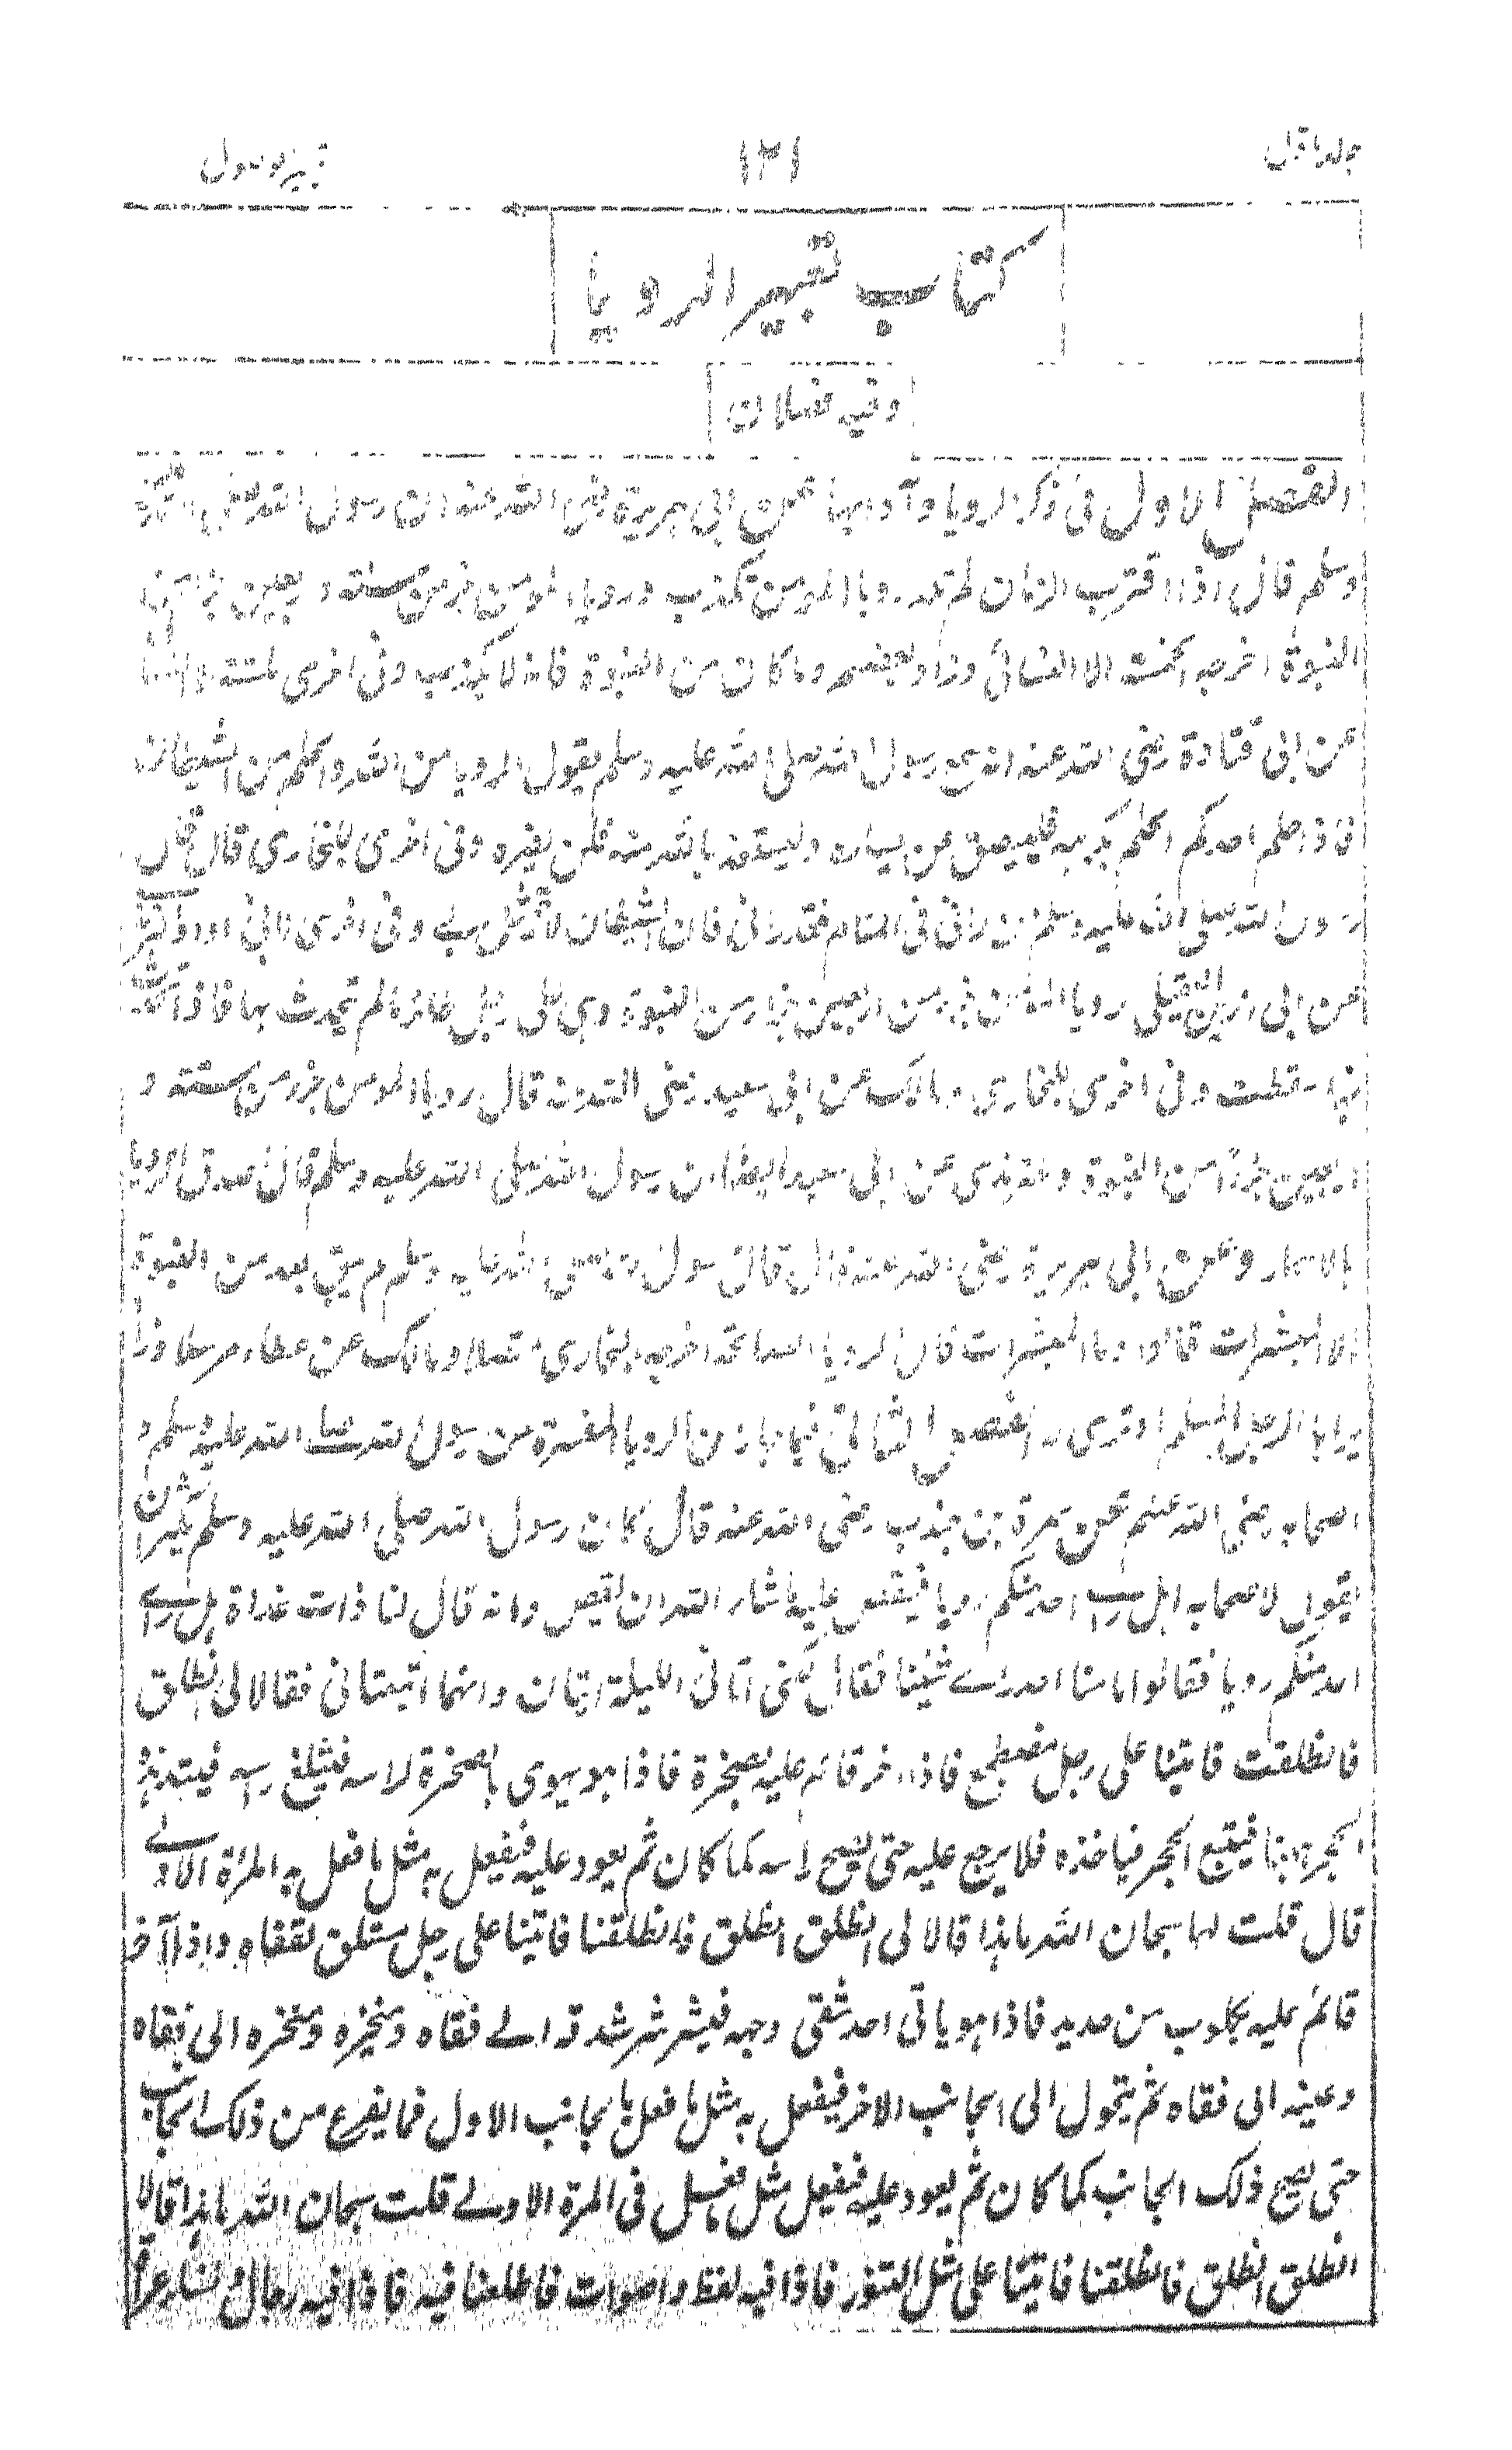 جلد اول
١٣١
تيسير الوصول
كتاب تعبير الرويا
وفيه فصلان
الفصل الاول فى ذكر الرويا وآدابها عن ابى هريرة رضى الله عنه ان رسول الله صلى الله عليه
وسلم قال اذا اقترب الزمان لم تكد رويا المومن تكذب ورويا المومن جزء من ستة و اربعين جزءا من
النبوة اخرجه الخمسة الا النسائى وزاد بعضهم وما كان من النبوة فانه لا يكذب وفى اخرى
عن ابى قتادة رضى الله عنه انه سمع رسول الله صلى الله عليه وسلم يقول الرويا من الله والحلم من الشيطان
فاذا حلم احدكم الحلم يكرهه فليبصق عن يساره وليستعذ بالله منه فلن يضره وفى اخرى للبخارى قال قال
رسول الله صلى الله عليه وسلم من رانى فى المنام فقد رانى فان الشيطان لا يتمثل بى وفى اخرى لابى داود
عن ابى رزين العقيلى رويا المومن جزء من اربعين جزءا من النبوة وهى على رجل طائر مالم يحدث بها فاذا تحدث
بها سقطت وفى اخرى للبخارى ومالك عن ابى سعيد رضى الله عنه قال رويا المومن جزء من ستة و
اربعين جزءا من النبوة وللترمذى عن ابى سعيد ايضا ان رسول الله صلى الله عليه وسلم قال اصدق الرويا
بالاسحار وعن ابى هريرة رضى الله عنه قال قال رسول الله صلى الله عليه وسلم لم يبق بعدى من النبوة
الا المبشرات قالوا وما المبشرات قال الرويا الصالحة اخرجه البخارى متصلا ومالك عن عطاء مرسلا وزاد
يراها الرجل المسلم او ترى له الفصل الثانى فيما جاء من الرويا المفسرة من رسول الله صلى الله عليه وسلم و
اصحابه رضى الله عنهم عن سمرة بن جندب رضى الله عنه قال كان رسول الله صلى الله عليه وسلم يكثر ان
يقول لاصحابه هل راى احد منكم رويا فيقص عليه ماشاء الله ان يقص وانه قال لنا ذات غداة هل راى
احد منكم رويا فقالوا ما منا احد راى شيئا فقال لكنى اتانى الليلة اتيان وانهما ابتعثانى فقالا لى انطلق
فانطلقت فاتينا على رجل مضطجع فاذا اخر قائم عليه بصخرة فاذا هو يهوى بالصخرة لراسه فيثلغ راسه فيتدهده
الحجر ههنا فيتبع الحجر فياخذه فلا يرجع عليه حتى يصح راسه كما كان ثم يعود عليه فيفعل به مثل ما فعل به المرة الاولى
قال قلت لهما سبحان الله ما هذا قالا لى انطلق انطلق فانطلقنا فاتينا على رجل مستلق لقفاه واذا آخر
قائم عليه بكلوب من حديد فاذا هو ياتى احد شقى وجهه فيشرشر شدقه الى قفاه ومنخره الى قفاه
وعينه الى قفاه ثم يتحول الى الجانب الاخر فيفعل به مثل ما فعل بالجانب الاول فما يفرغ من ذلك الجانب
حتى يصح ذلك الجانب كما كان ثم يعود عليه فيفعل مثل ما فعل فى المرة الاولى قلت سبحان الله ما هذا قالا
انطلق انطلق فانطلقنا فاتينا على مثل التنور فاذا فيه لغط واصوات فاطلعنا فيه فاذا فيه رجال ونساء عراة